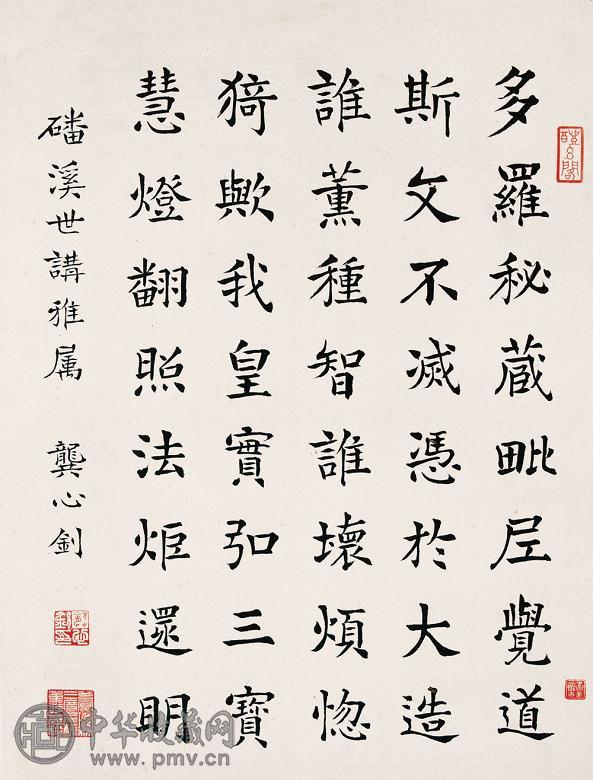 多羅秘蔵毗尼覺道
斯文不滅憑於大造
誰薰種智誰壞煩惚
猗歟我皇實弘三寶
慧燈翻照法炬還明
磻溪世講雅属 龔心釗
中华收藏网
www.pmv.cn